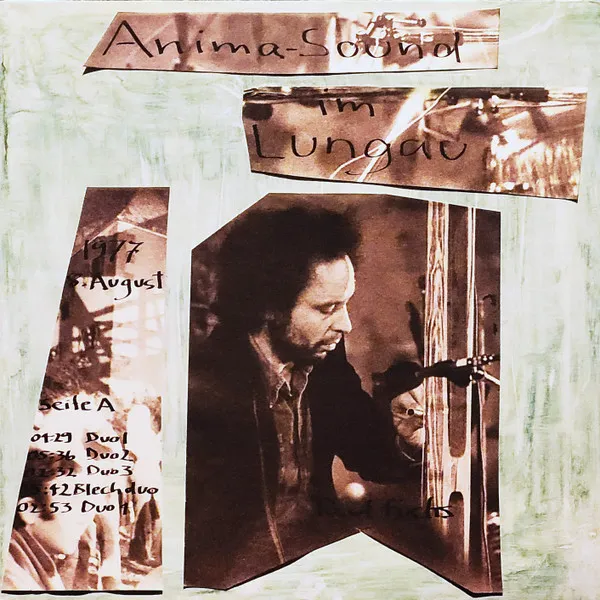 Anima-Sound
im
Lungau
1977
3. August
Seite A
04:29 Duo1
05:36 Duo2
02:32 Duo3
:42 Blechduo
02:53 Duo4